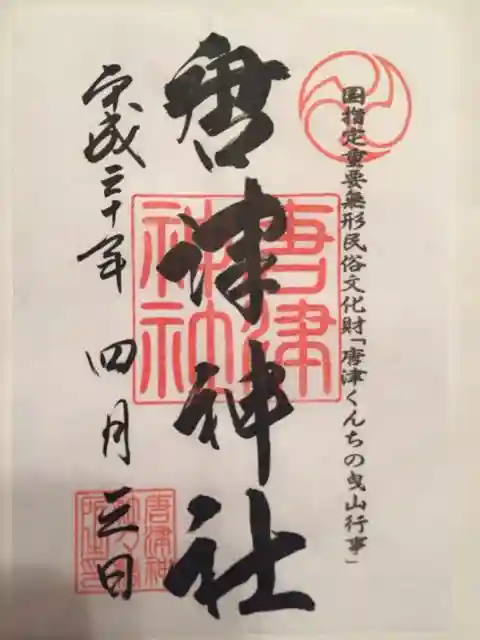 国指定重要無形民俗文化財「唐津くんちの曳山行事」
唐津神社
唐津神社
平成三十年 四月 三日